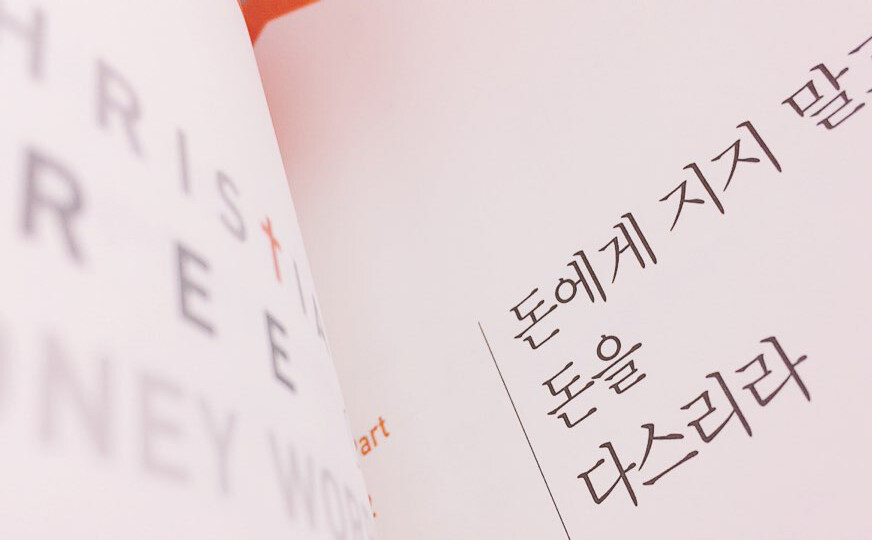 HRISTIA
REE
NEY WOR
art
돈에게 지지 말고
돈을
다스리라